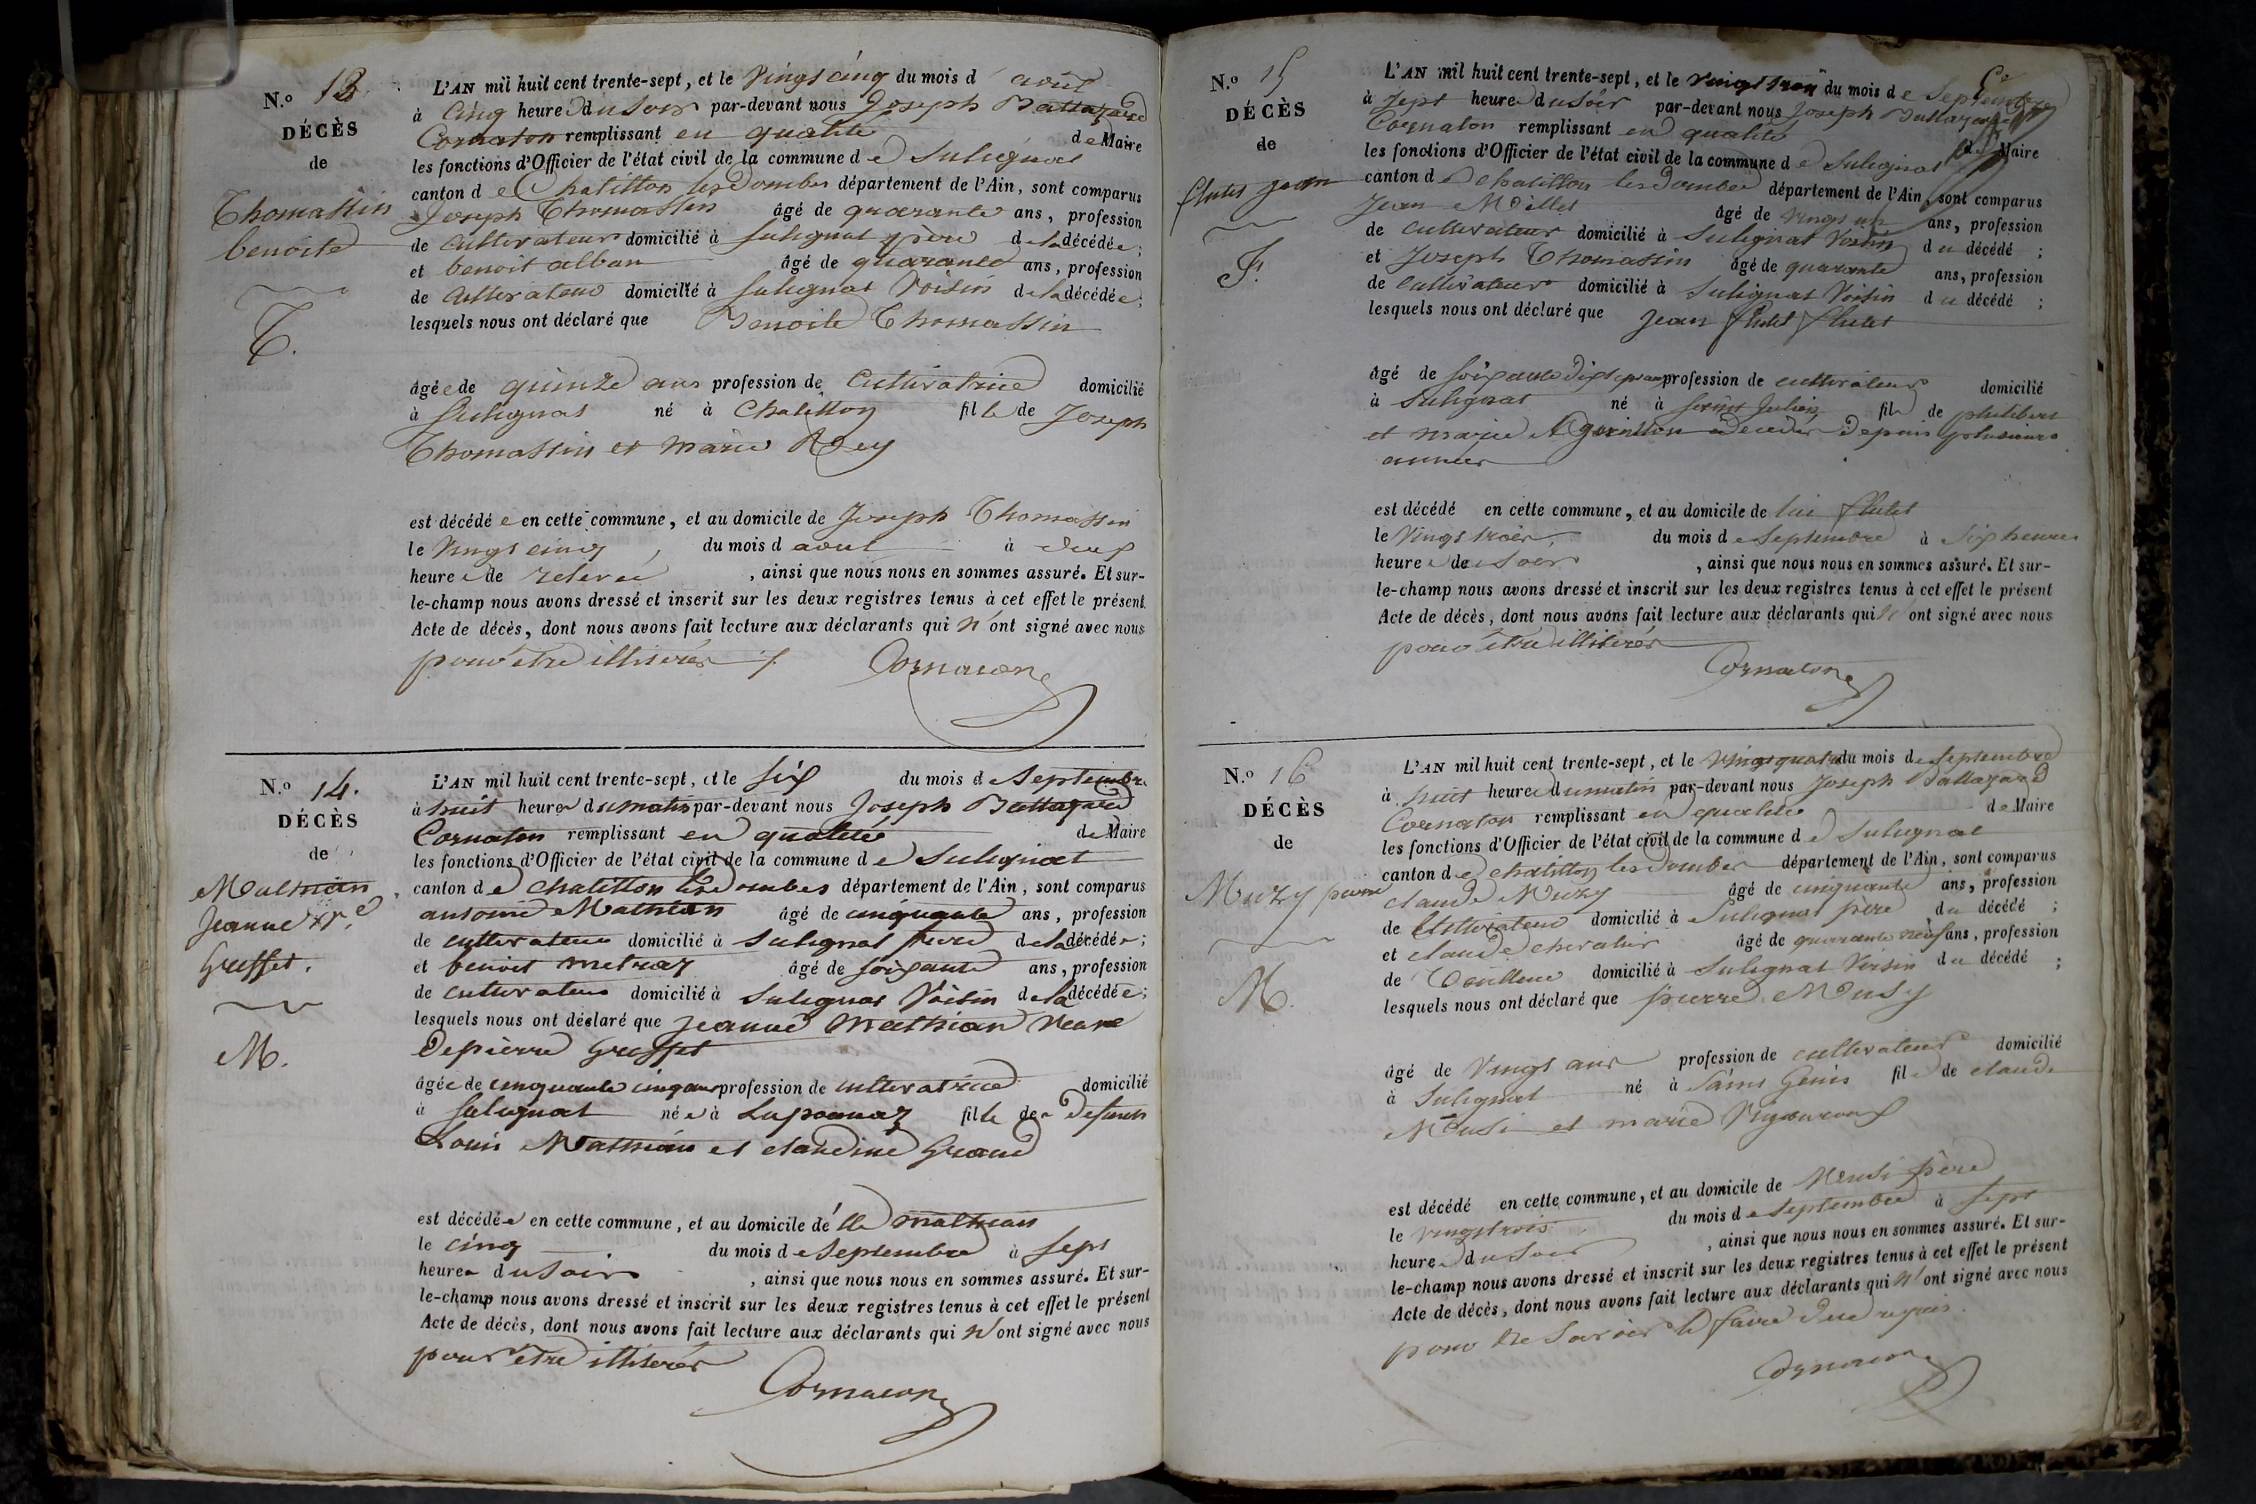 N.º 13.
DÉCÈS
de
Thomassin
benoite
T.
L'AN mil huit cent trente-sept, et le vingt cinq du mois d août
à cinq heures du soir par-devant nous Joseph Baltazard
Cornaton remplissant en qualité de Maire
les fonctions d'Officier de l'état civil de la commune de Sulignat
canton de Chatillon les Dombes département de l'Ain, sont comparus
Joseph Thomassin âgé de quarante ans, profession
de cultivateur domicilié à Sulignat père de la décédée;
et benoit alban âgé de quarante ans, profession
de cultivateur domicilié à Sulignat Voisin de la décédée;
lesquels nous ont déclaré que Benoite Thomassin
âgée de quinze ans profession de cultivatrice domicilié
à Sulignat né à Chatillon fille de Joseph
Thomassin et marie Rey
est décédée en cette commune, et au domicile de Joseph Thomassin
le vingt cinq, du mois d aout à deux
heures de relevée, ainsi que nous nous en sommes assuré. Et sur-
le-champ nous avons dressé et inscrit sur les deux registres tenus à cet effet le présent
Acte de décès, dont nous avons fait lecture aux déclarants qui n'ont signé avec nous
pour être illiterés
Cornaton
N.º 14.
DÉCÈS
de
Mathian
Jeanne Ve
Greffet.
M.
L'AN mil huit cent trente-sept, et le six du mois de Septembre
à huit heures du matin par-devant nous Joseph Baltazard
Cornaton remplissant en qualité de Maire
les fonctions d'Officier de l'état civil de la commune de Sulignat
canton de chatillon les Dombes département de l'Ain, sont comparus
antoine Mathian âgé de cinquante ans, profession
de cultivateur domicilié à Sulignat frere de la décédée;
et benoit metraz âgé de soixante ans, profession
de cultivateur domicilié à Sulignat Voisin de la décédée;
lesquels nous ont déclaré que Jeanne Mathian Veuve
De pierre Greffet
âgée de cinquante cinq ans profession de cultivatrice domicilié
à Sulignat née à Lapeyrouz fille de Defunts
Louis Mathian et claudine Grand
est décédée en cette commune, et au domicile de lle mathian
le cinq du mois de Septembre à sept
heures du soir, ainsi que nous nous en sommes assuré. Et sur-
le-champ nous avons dressé et inscrit sur les deux registres tenus à cet effet le présent
Acte de décès, dont nous avons fait lecture aux déclarants qui n'ont signé avec nous
pour être illiterés
Cornaton
N.º 15
DÉCÈS
de
flutet jean
F.
L'AN mil huit cent trente-sept, et le vingt trois du mois de Septembre
à sept heures du soir par-devant nous Joseph Baltazard
Cornaton remplissant en qualité de Maire
les fonctions d'Officier de l'état civil de la commune de Sulignat
canton de chatillon les Dombes département de l'Ain, sont comparus
Jean Millet âgé de vingt un ans, profession
de cultivateur domicilié à Sulignat Voisin du décédé;
et Joseph Thomassin âgé de quarante ans, profession
de cultivateur domicilié à Sulignat Voisin du décédé;
lesquels nous ont déclaré que Jean flutet flutet
âgé de soixante dix sept ans profession de cultivateur domicilié
à Sulignat né à saint Julien fils de philibert
et marie decedés depuis plusieurs
années
est décédé en cette commune, et au domicile de lui flutet
le vingt trois du mois de Septembre à six heures
heures du soir, ainsi que nous nous en sommes assuré. Et sur-
le-champ nous avons dressé et inscrit sur les deux registres tenus à cet effet le présent
Acte de décès, dont nous avons fait lecture aux déclarants qui n'ont signé avec nous
pour être illiterés
Cornaton
N.º 16
DÉCÈS
de
Muzy pierre
M.
L'AN mil huit cent trente-sept, et le vingt quatre du mois de Septembre
à huit heures du matin par-devant nous Joseph Baltazard
Cornaton remplissant en qualité de Maire
les fonctions d'Officier de l'état civil de la commune de Sulignat
canton de chatillon les Dombes département de l'Ain, sont comparus
claude Muzy âgé de cinquante ans, profession
de Cultivateur domicilié à Sulignat père du décédé;
et claude chevalier âgé de quarante neuf ans, profession
de Tailleur domicilié à Sulignat Voisin du décédé;
lesquels nous ont déclaré que pierre Musy
âgé de Vingt ans profession de cultivateur domicilié
à Sulignat né à Saint Genis fils de claude
Musi et marie Vigouroux
est décédé en cette commune, et au domicile de Musi père
le vingt trois du mois de Septembre à sept
heures du soir, ainsi que nous nous en sommes assuré. Et sur-
le-champ nous avons dressé et inscrit sur les deux registres tenus à cet effet le présent
Acte de décès, dont nous avons fait lecture aux déclarants qui n'ont signé avec nous
pour ne savoir le faire de ce requis.
Cornaton